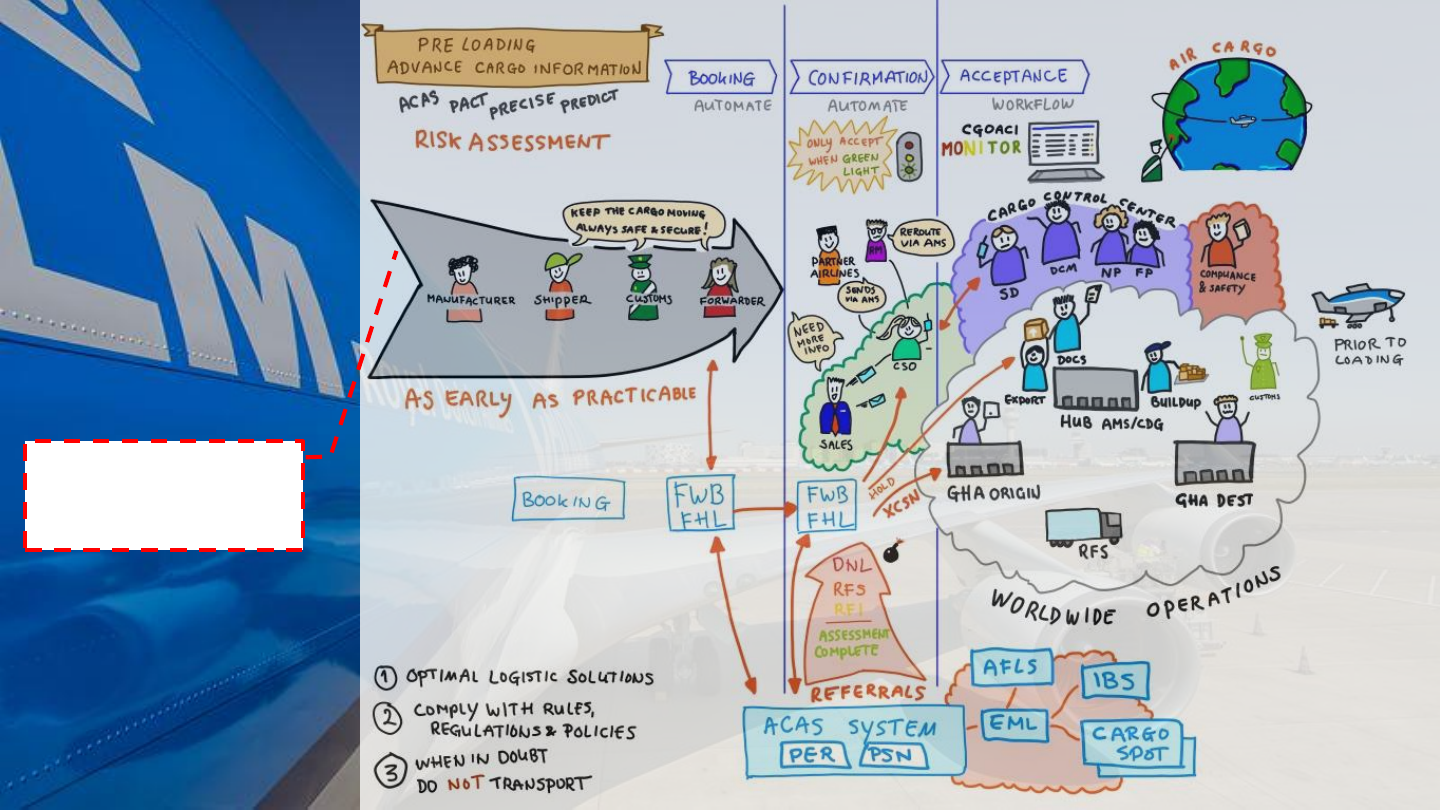 LM
PRE LOADING
ADVANCE CARGO INFORMATION
ACAS PACT PRECISE PREDICT
RISK ASSESSMENT
BOOKING
AUTOMATE
CONFIRMATION
AUTOMATE
ACCEPTANCE
WORKFLOW
AIR CARGO
ONLY ACCEPT
WHEN GREEN
LIGHT
CGOACI
MONITOR
KEEP THE CARGO MOVING
ALWAYS SAFE & SECURE!
MANUFACTURER
SHIPPER
CUSTOMS
FORWARDER
AS EARLY AS PRACTICABLE
PARTNER
AIRLINES
RM
REROUTE
VIA AMS
SENDS
VIA AMS
NEED
MORE
INFO
CSO
SALES
CARGO CONTROL CENTER
SD
DCM
NP
FP
COMPLIANCE
& SAFETY
PRIOR TO
LOADING
DOCS
EXPORT
BUILDUP
CUSTOMS
HUB AMS/CDG
GHA ORIGIN
GHA DEST
RFS
WORLDWIDE OPERATIONS
BOOKING
FWB
FHL
FWB
FHL
HOLD
XCSN
DNL
RFS
RFI
ASSESSMENT
COMPLETE
REFERRALS
ACAS SYSTEM
PER
PSN
AFLS
IBS
EML
CARGO
SPOT
1 OPTIMAL LOGISTIC SOLUTIONS
2 COMPLY WITH RULES,
REGULATIONS & POLICIES
3 WHEN IN DOUBT
DO NOT TRANSPORT